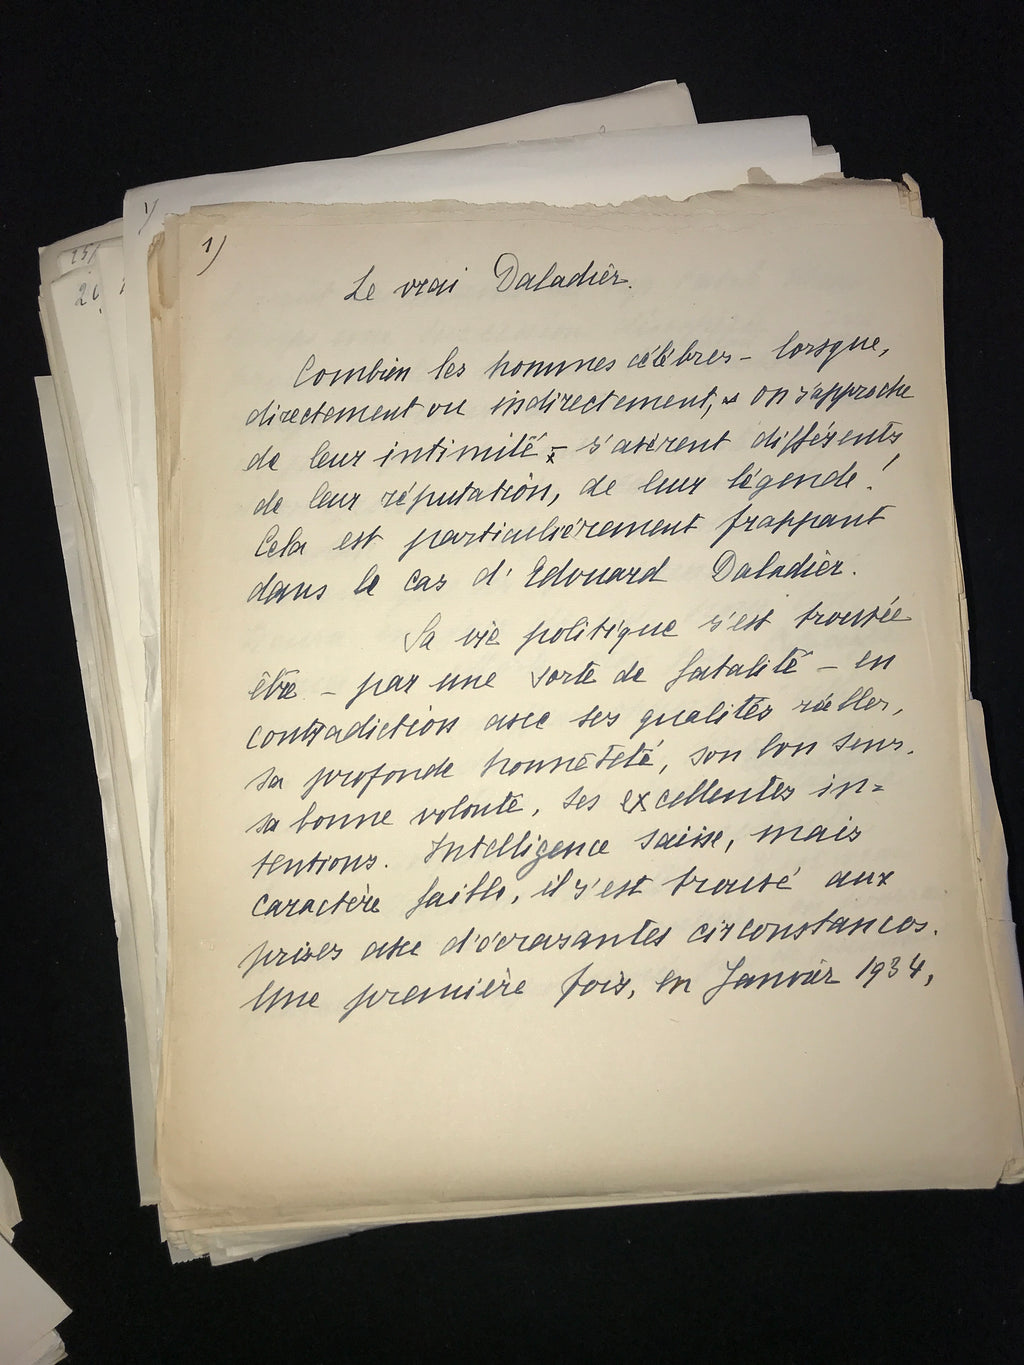 1)
Le vrai Daladier.
Combien les hommes célèbres – lorsque,
directement ou indirectement, on s'approche
de leur intimité – s'avèrent différents
de leur réputation, de leur légende!
Cela est particulièrement frappant
dans le cas d'Edouard Daladier.
Sa vie politique s'est trouvée
être – par une sorte de fatalité – en
contradiction avec ses qualités réelles,
sa profonde honnêteté, son bon sens.
sa bonne volonté, ses excellentes in=
tentions. Intelligence saisie, mais
caractère faible, il s'est trouvé aux
prises avec d'écrasantes circonstances.
Une première fois, en Janvier 1934,
1)
25)
20